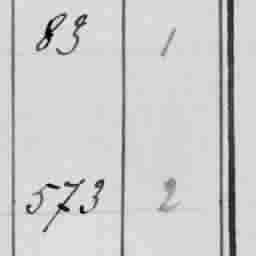 83 1
573 2